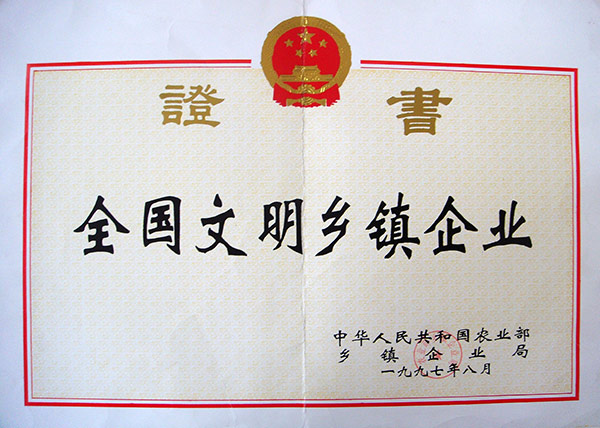 證書
全国文明乡镇企业
中华人民共和国农业部
乡镇企业局
一九九七年八月